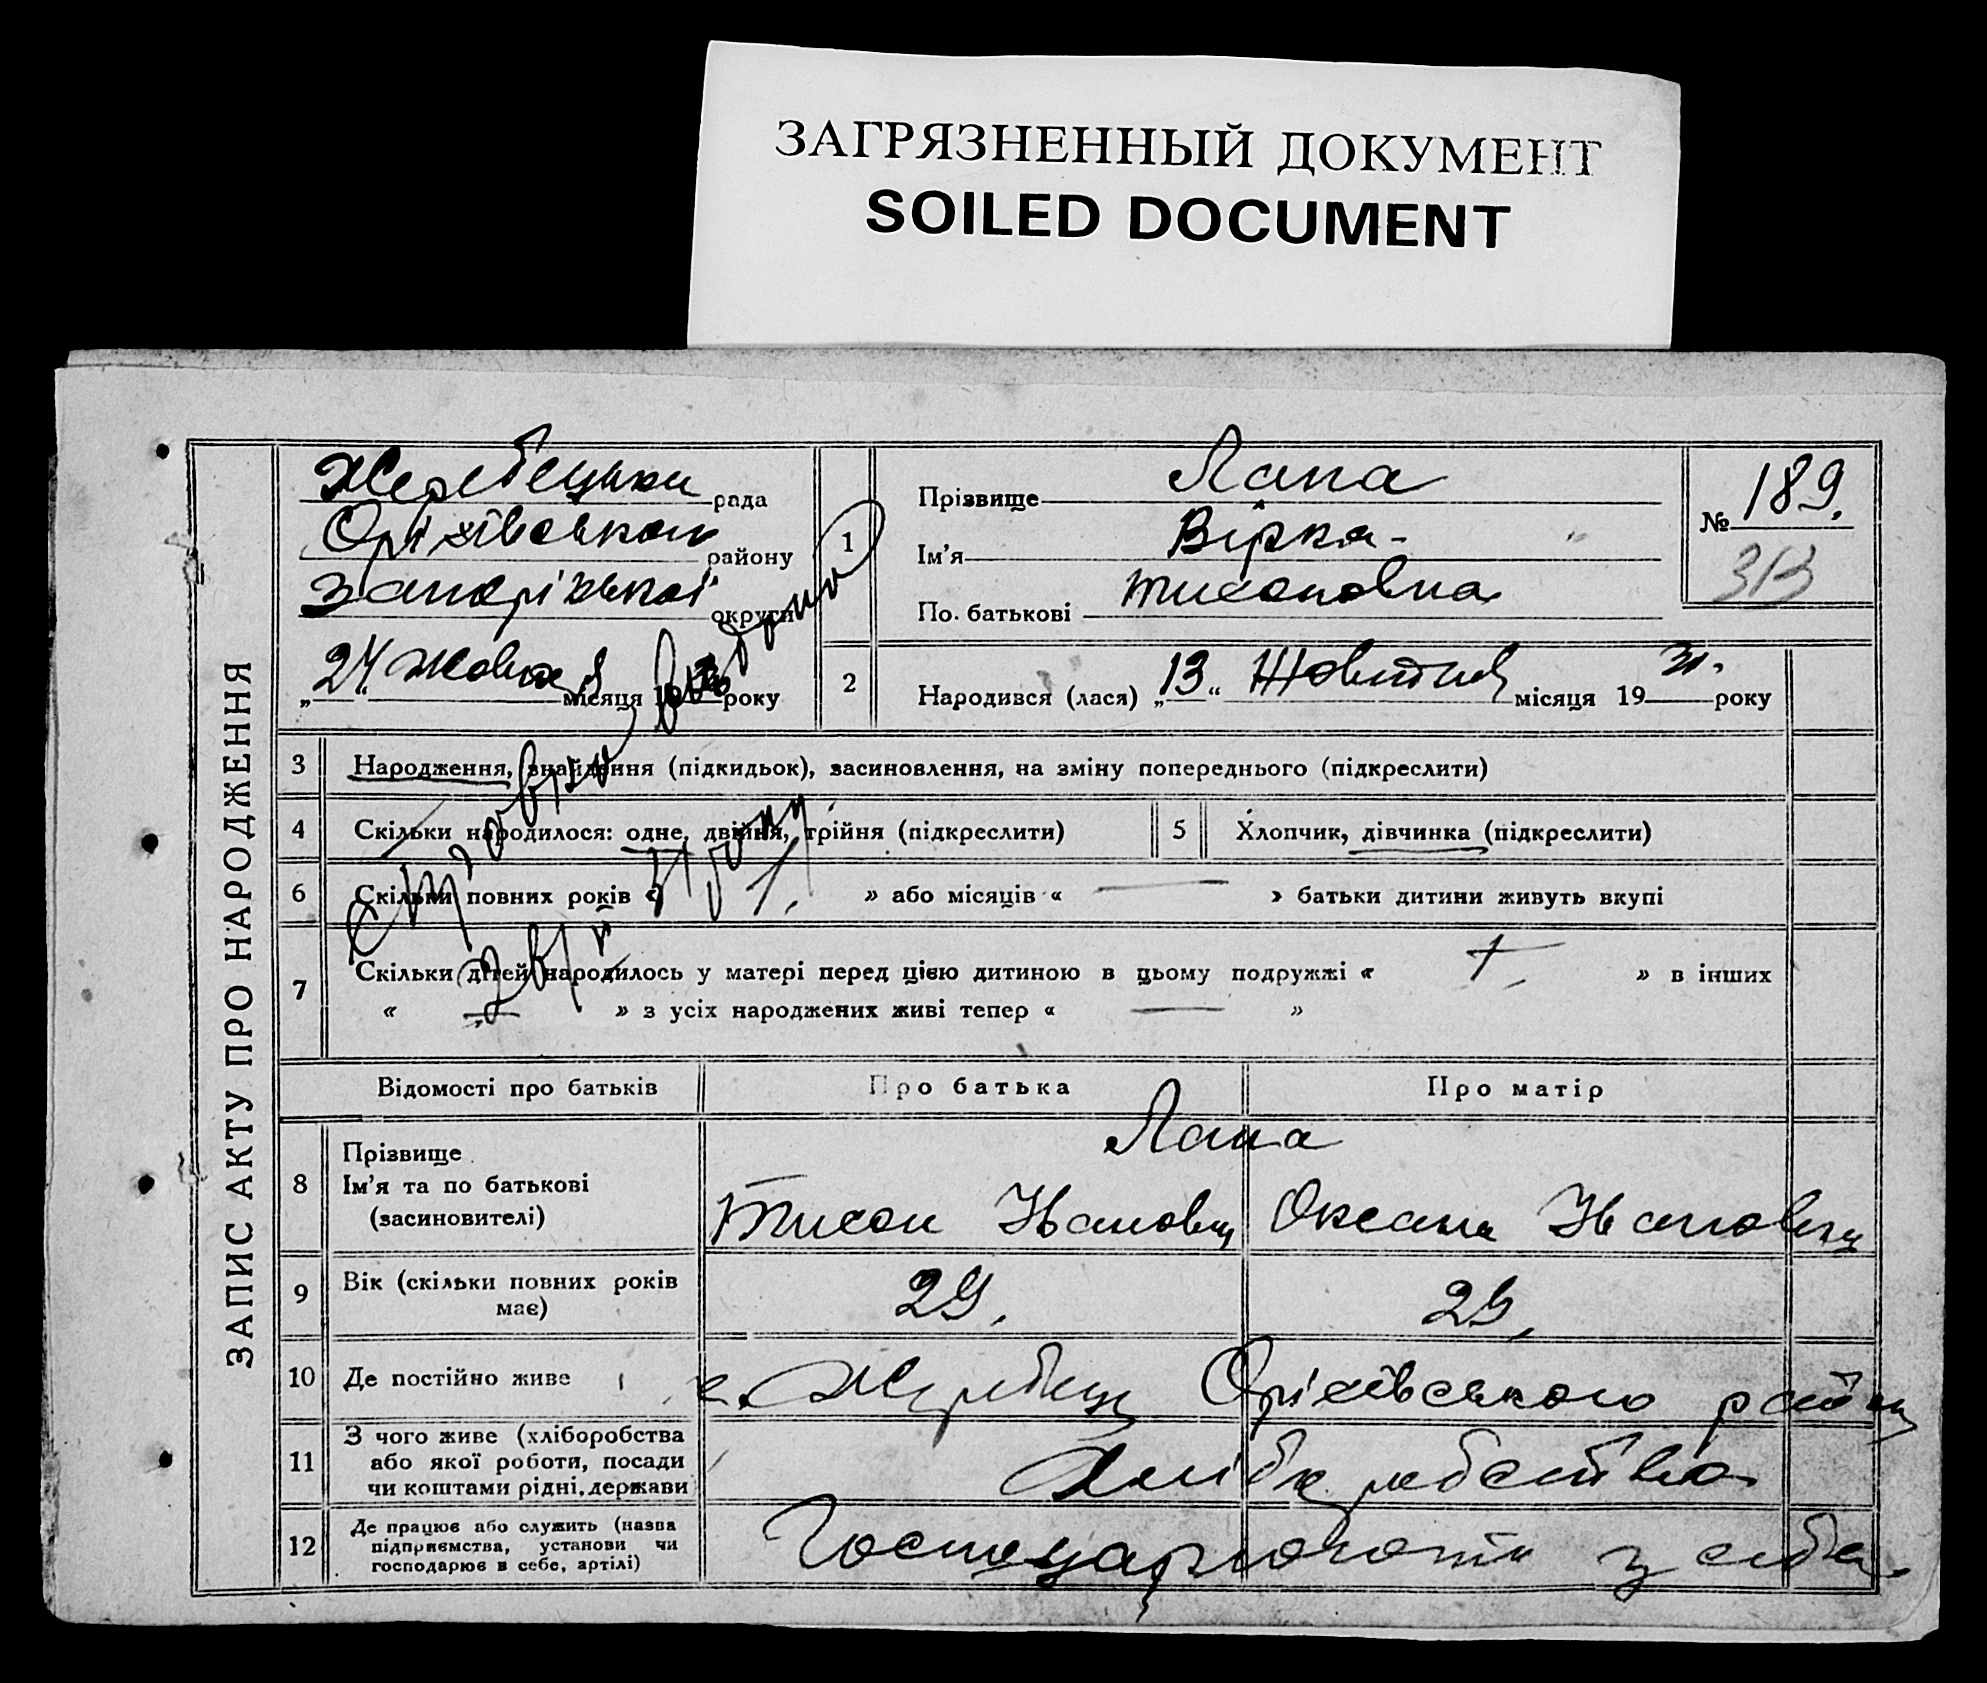 ЗАГРЯЗНЕННЫЙ ДОКУМЕНТ
SOILED DOCUMENT
ЗАПИС АКТУ ПРО НАРОДЖЕННЯ
Жеребецька рада
Оріхівського району
Запорізької округи
„24“ Жовтня місяця 19 року
1
Прізвище Лапа
Ім'я Вірка
По батькові Тихоновна
№ 189.
313
2
Народився (лася) „13“ Жовтня місяця 19 31. року
3 Народження, знайдення (підкидьок), засиновлення, на зміну попереднього (підкреслити)
4 Скільки народилося: одне, двійня, трійня (підкреслити)
5 Хлопчик, дівчинка (підкреслити)
6 Скільки повних років « 1. » або місяців « — » батьки дитини живуть вкупі
7 Скільки дітей народилось у матері перед цією дитиною в цьому подружжі « » в інших
« » з усіх народжених живі тепер « — »
Відомості про батьків Про батька Про матір
8 Прізвище Лапа
Ім'я та по батькові
(засиновителі) Тихон Іванович Оксана Івановна
9 Вік (скільки повних років має) 29. 29.
10 Де постійно живе с. Жеребець Оріхівського району
11 З чого живе (хліборобства
або якої роботи, посади
чи коштами рідні, держави Хліборобство
12 Де працює або служить (назва
підприємства, установи чи
господарює в себе, артілі) Господарюють у себе.